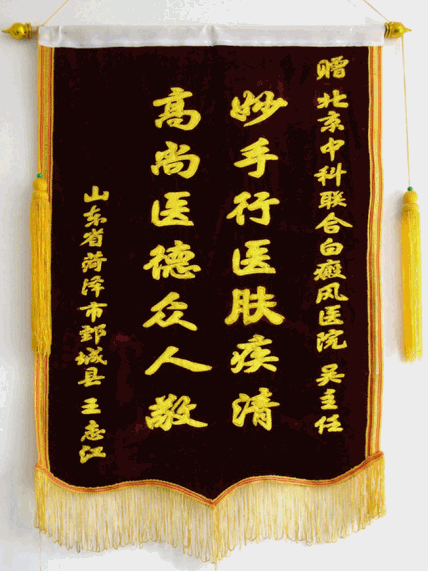 赠北京中科联合白癜风医院 吴主任
妙手行医肤疾清
高尚医德众人敬
山东省菏泽市鄄城县 王志江